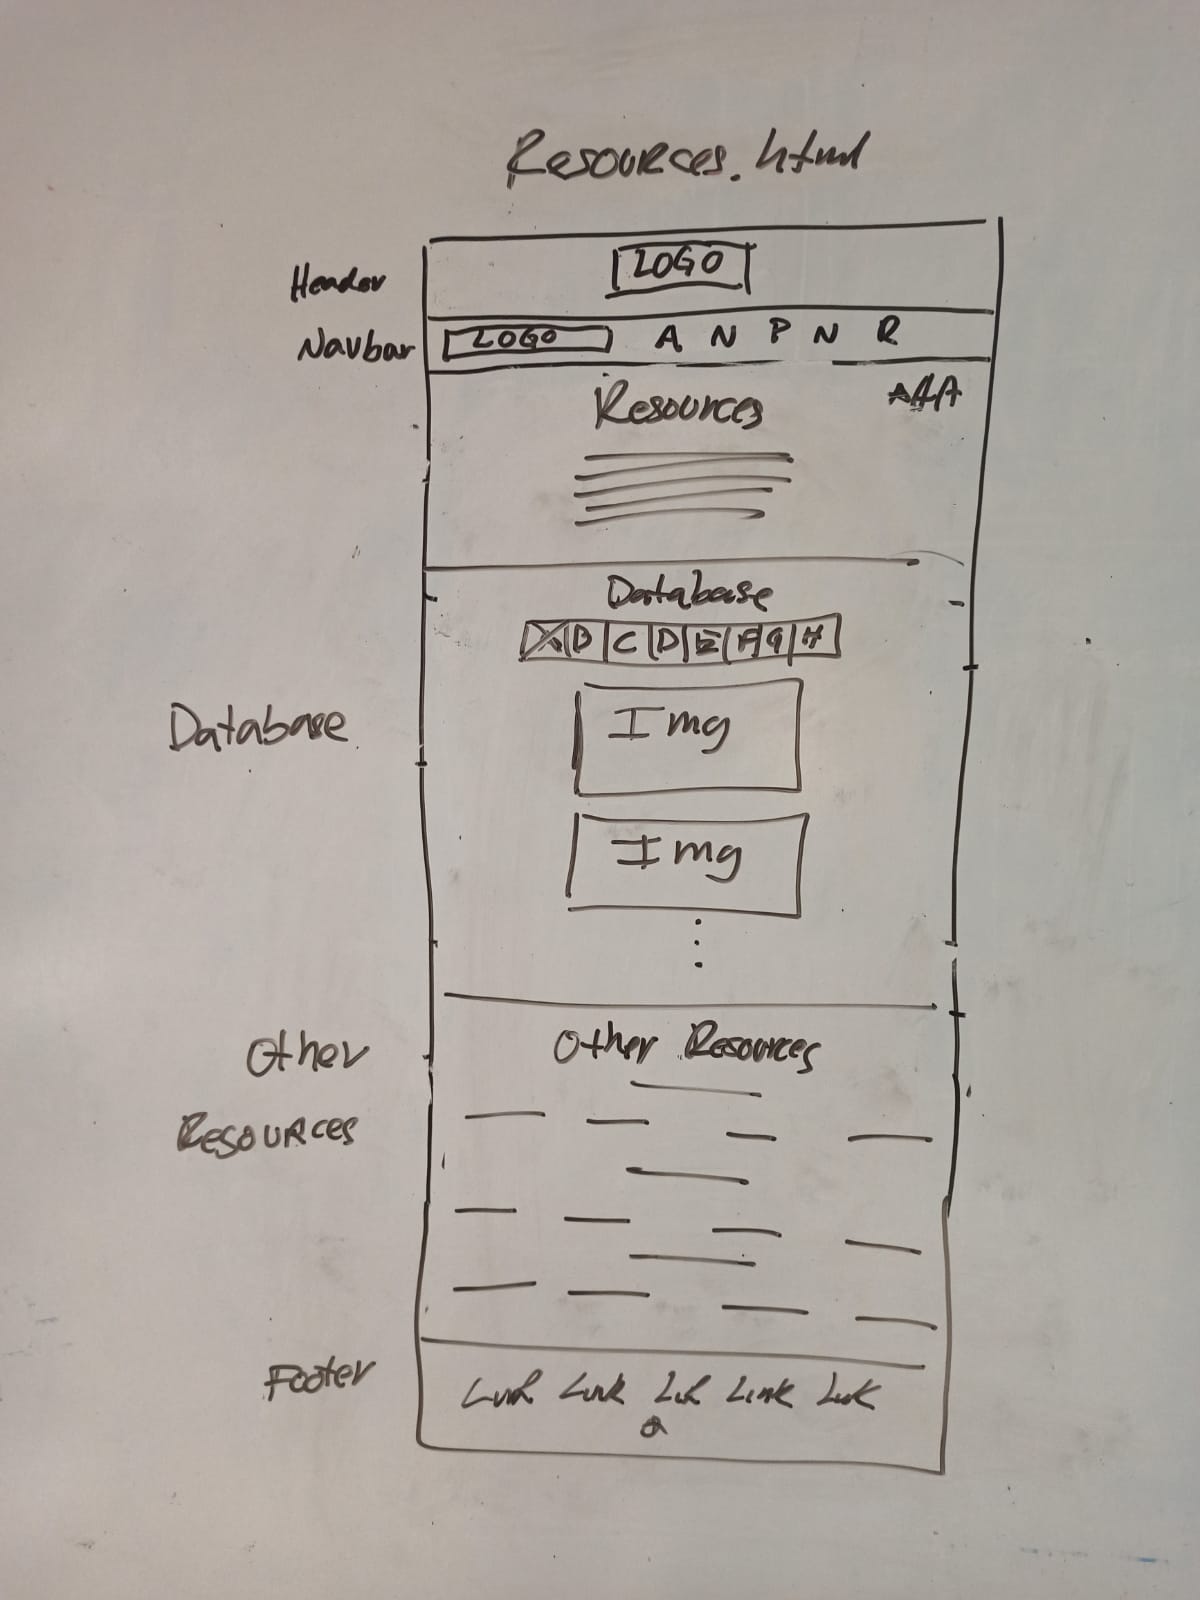 Resources.html
Header
LOGO
Navbar
LOGO A N P N R
Resources
AAA
Database
B C D E F G H
Database
Img
Img
Other Resources
Other
Resources
Footer
Link Link Link Link Link